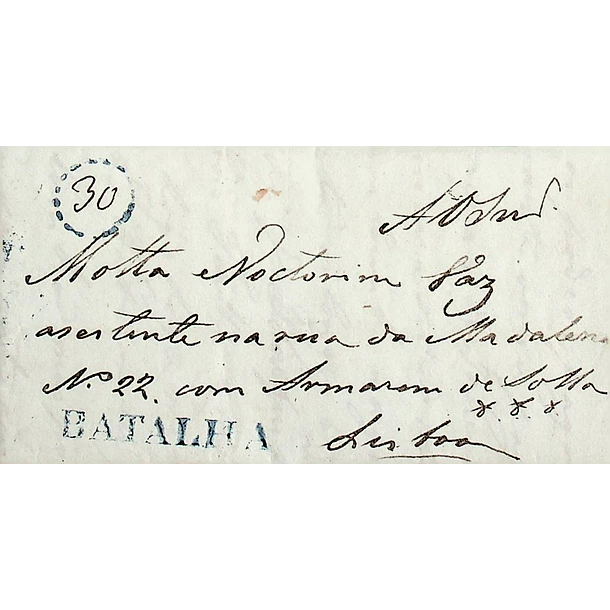 30
A O Snr.
Motta Noctorim Váz
asestente na rua da Madalena
N.º 22. com Armarem de Solla
BATALHA
Lisboa